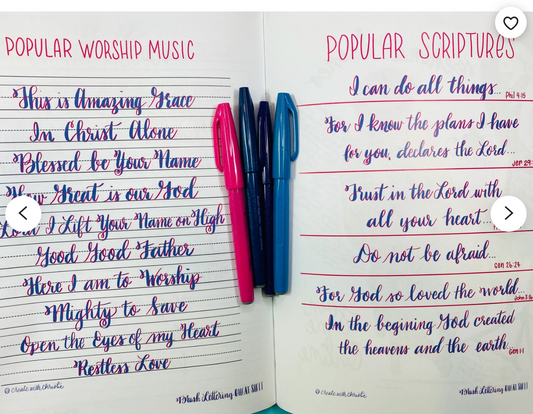 POPULAR WORSHIP MUSIC
This is Amazing Grace
In Christ Alone
Blessed be Your Name
How Great is our God
Lord I Lift Your Name on High
Good Good Father
Here I am to Worship
Mighty to Save
Open the Eyes of my Heart
Restless Love
© Create.with.Christie
Brush Lettering
POPULAR SCRIPTURES
I can do all things...
Phil 4:15
For I know the plans I have
for you, declares the Lord...
Jer 29:
Trust in the Lord with
all your heart...
Do not be afraid...
Gen 26:24
For God so loved the world...
John 3:16
In the begining God created
the heavens and the earth...
Gen 1:1
© Create.with.Christie
Brush Lettering